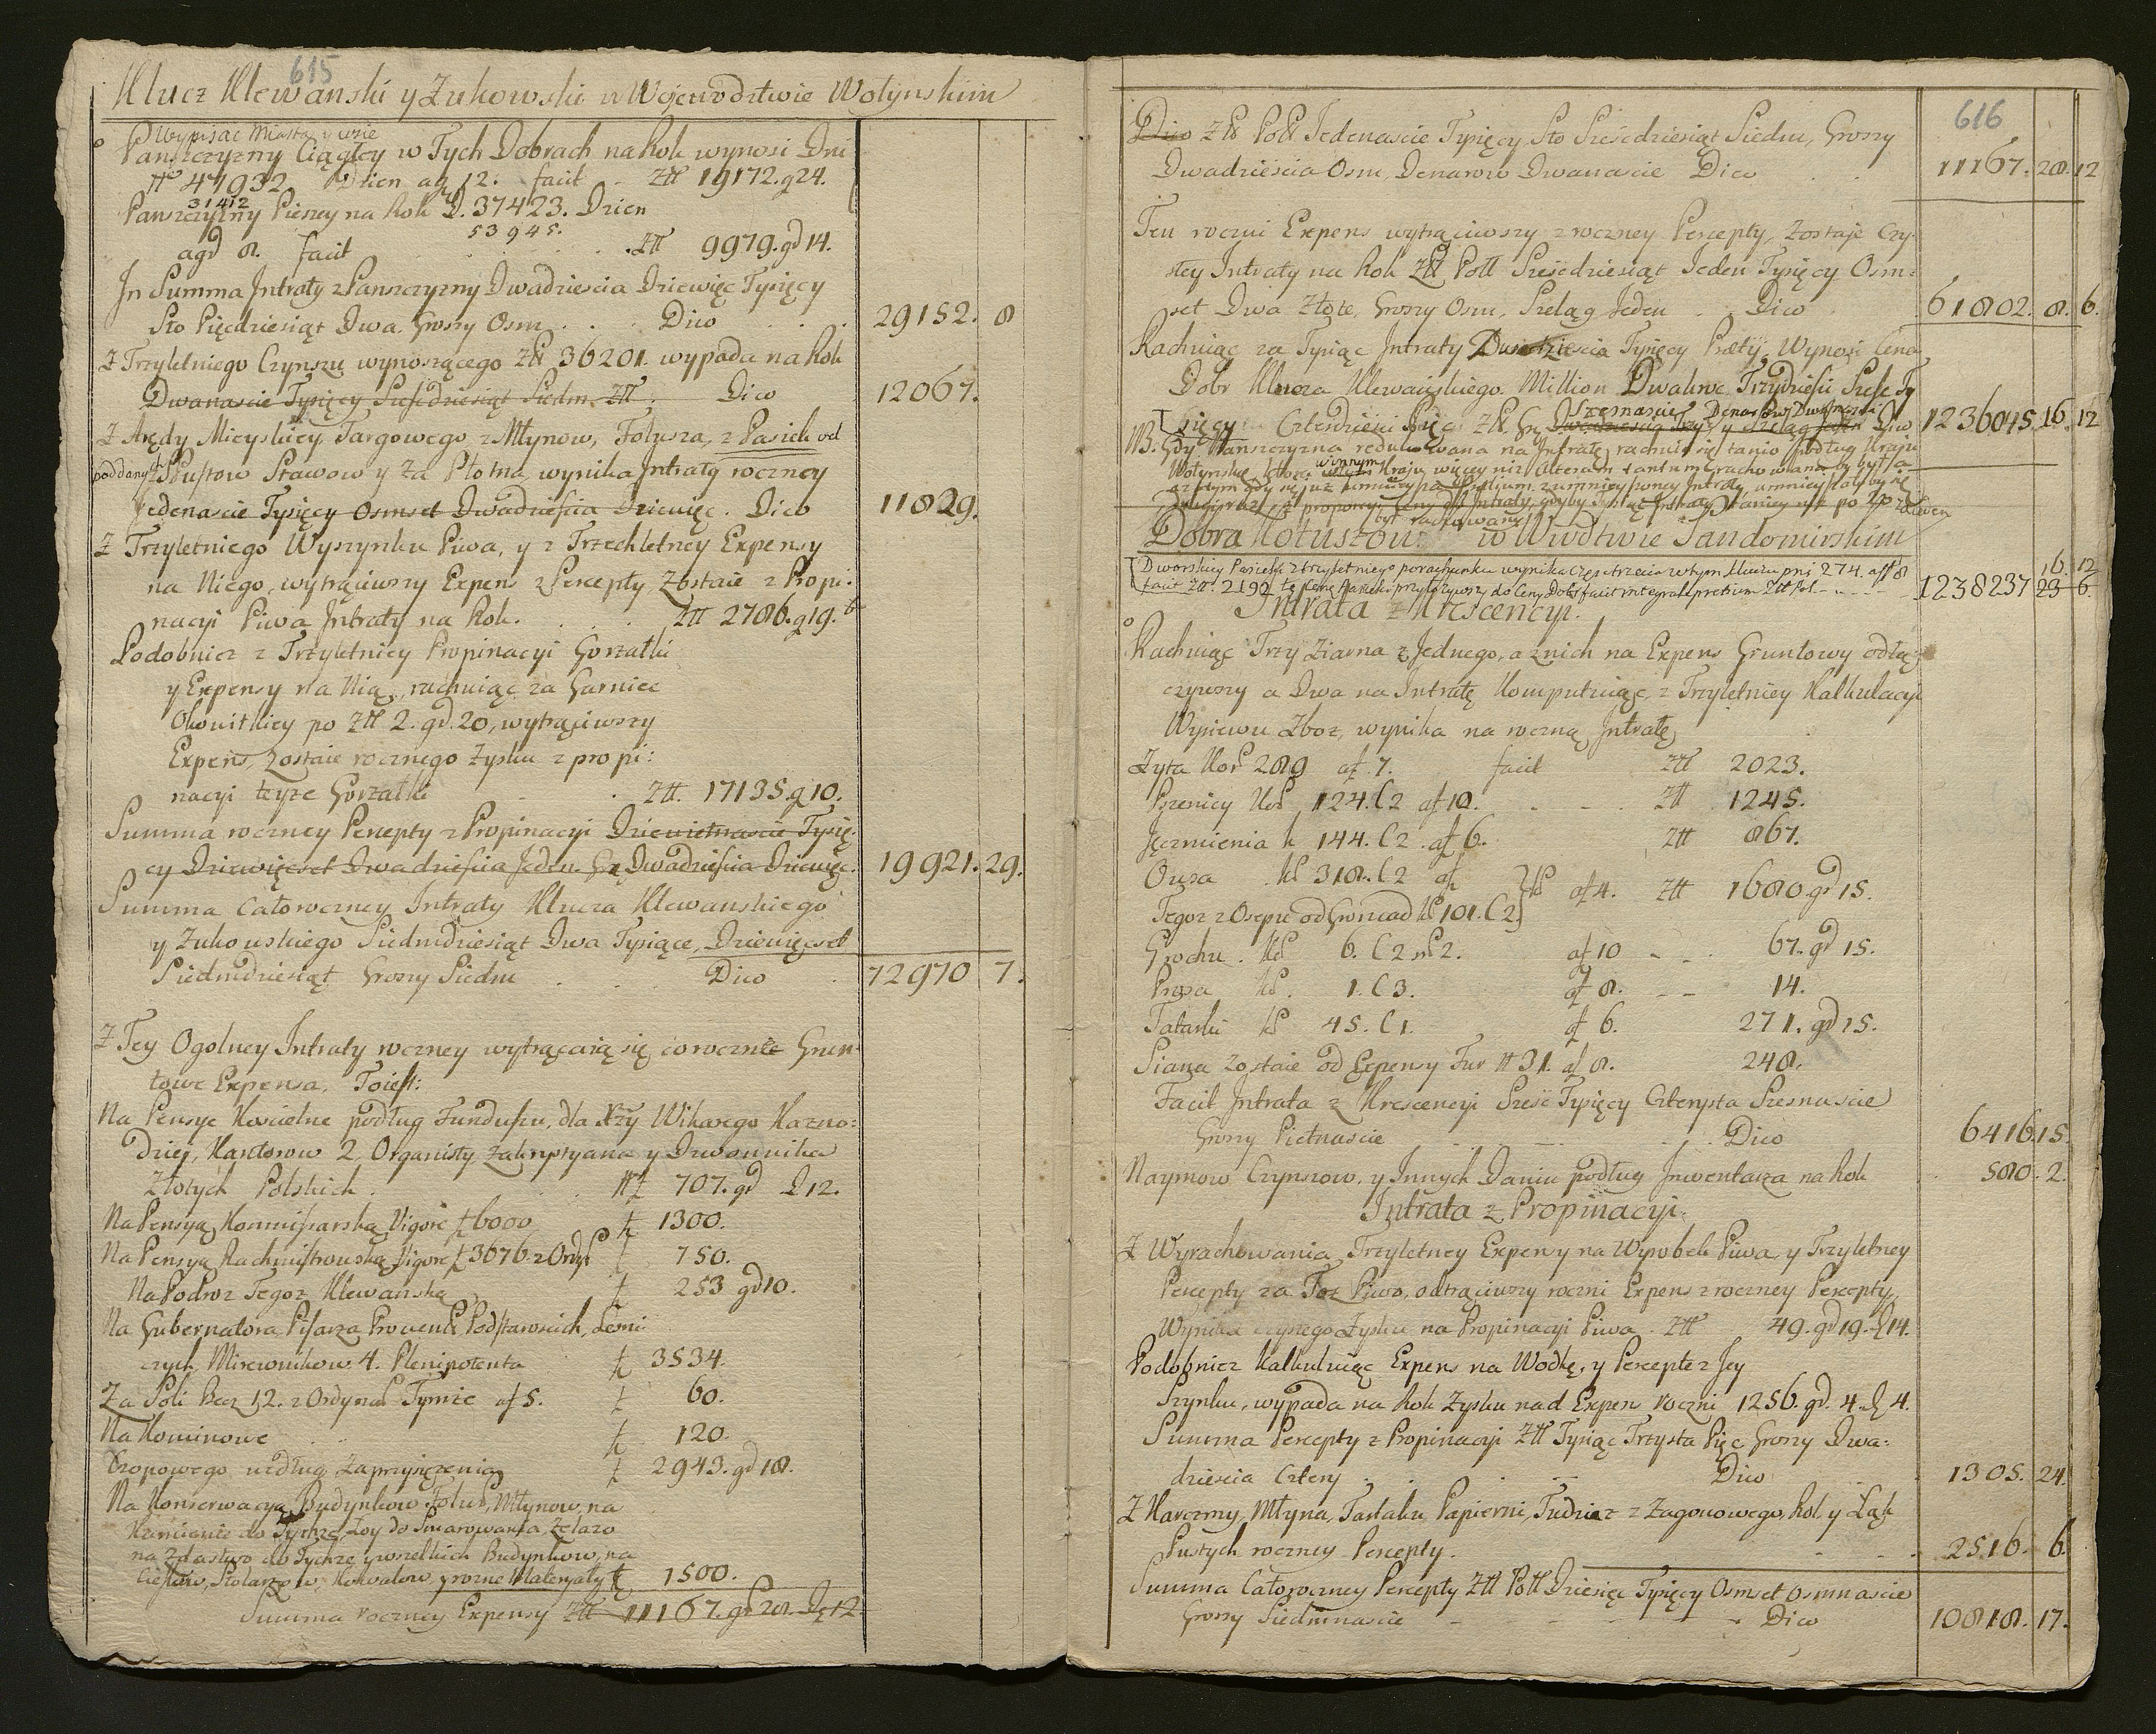 615
Klucz Klewanski y Żukowski w Wojewodztwie Wołynskim
Wypisac Miasta y wsie
Panszczyzny Ciągłey w Tych Dobrach na Rok wynosi Dni
47932 Dzien a g 12. facit Ztt 19172. g 24.
31412
Panszczyzny Pieszey na Rok D. 37423. Dzien
53945.
a gd 8. facit Ztt 9979. gd 14.
In Summa Intraty z Panszczyzny Dwadziescia Dziewięc Tysięcy
Sto Pięcdziesiąt Dwa Groszy Osm . . . Dico . . . 29152. 8
Z Trzyletniego Czynszu wynoszącego Ztt 36201. wypada na Rok
Dwanascie Tysięcy Szescdziesiąt Siedm Ztt. Dico 12067.
Z Arędy Mieyskiey, Targowego, z Młynow, Folusza, z Pasiek od
poddanych z Spustow Stawow y za Płotna, wynika Intraty roczney
Jedenascie Tysięcy Osmset Dwadziescia Dziewięc. Dico 11829.
Z Trzyletniego Wyszynku Piwa, y z Trzechletney Expensy
na Niego, wytrąciwszy Expens z Percepty, Zostaie z Propi:
nacyi Piwa Intraty na Rok. . . . Ztt 2786. g 19.
Podobniez z Trzyletniey Propinacyi Gorzałki
y Expensy na Nią, rachuiąc za Garniec
Okowitkiey po Ztt 2. gd. 20, wytrąciwszy
Expens, zostaie rocznego Zysku z propi:
nacyi teyze Gorzałki . Ztt. 17135. g 10.
Summa roczney Percepty z Propinacyi Dziewietnascie Tysię:
cy Dziewięcset Dwadziescia Jeden Gr. Dwadziescia Dziewięc. 19921. 29.
Summa Całoroczney Intraty Klucza Klewanskiego
y Żukowskiego Siedmdziesiąt Dwa Tysiące, Dziewięcset
Siedmdziesiąt Groszy Siedm . . . Dico . 72970 7.
Z Tey Ogolney Intraty roczney wytrącaią się corocznie Grun-
towe Expensa, Toiest:
Na Pensye Koscielne podług Funduszu, dla Xży Wikarego Kazno:
dziei, Kantorow 2, Organisty, Zakrystyana y Dzwonnika
Złotych Polskich . . . 707. gd D 12.
Na Pensyą Kommissarską Vigore 6000 1300.
Na Pensyą Rachmistrzowską Vigore 3676. z Ordyn 750.
Na Podroz Tegoz Klewanską 253 gd 10.
Na Gubernatora, Pisarza Prowent, Podstaroscich, Lesni
czych, Mirownikow 4. Plenipotenta 3534.
Za Soli Becz 12. z Ordynac Tymze a f 5. 60.
Na Kominowe . . 120.
Czopowego według Zaprzysięzenia 2943. gd 18.
Na Konserwacyą Budynkow, Folusz, Młynow, na
Kamienie do Tychze, Łoy do Smarowania, Żelazo
na Zelastwo do Tychze y wszelkich Budynkow, na
Cieslow, Stolarzow, Kowalow, y rozne Materyały 1500.
Summa roczney Expensy Ztt 11167. gr 28. D 12.
616
Dico Ztt Poll Jedenascie Tysięcy Sto Szescdziesiąt Siedm, Groszy
Dwadziescia Osm, Denarow Dwanascie Dico . . 11167. 28. 12
Ten roczni Expens wytrąciwszy z roczney Percepty, Zostaje Czy-
stey Intraty na Rok Ztt Poll Szescdziesiąt Jeden Tysięcy Osm:
set Dwa Złote, Groszy Osm, Szeląg Jeden . Dico 61802. 8. 6.
Rachuiąc za Tysiąc Intraty Dwadziescia Tysięcy Prety. Wynosi Cena
Dobr Klucza Klewańskiego Million Dwakroc Trzydziesci Szesc Ty
Szesnascie Denarow Dwanascie
sięcy Czterdziesci Pięc Ztt. Gr. Dwadziescia Trzy y Szeląg Jeden Dico 1236045. 16. 12
NB. Gdy Panszczyzna redukowana na Intratę, rachuie się tanio podług Kraju
Wołynskie, ktora w innym Kraju więcey niz alterum tantum rachowana by była
Dobra Kotuszow w Wwdztwie Sandomirskim
Dworskiey Pasieki z trzyletniego porachunku wynika częsc trzecia w tym Kluczu pni 274. a ff 8
facit Ztt. 2192 tę cenę Pasiek przyłożywszy do Ceny Dobr facit integrale pretium Ztt Pol. 1238237 16. 12
23 6.
Intrata z Krescencyi.
Rachuiąc Trzy Ziarna z Jednego, a z nich na Expens Gruntowy odłą-
czywszy a Dwa na Intratę Komputuiąc z Trzyletniey Kalkulacyi
Wysiewu Zboz, wynika na roczną Intratę
Zyta Kor 289 a f. 7. facit Ztt 2023.
Pszenicy Kor 124. C 2 a f 10. . . . Ztt 1245.
Jęczmienia k 144. C 2. a f 6. Ztt 867.
Owsa K 318. C 2 a f
a f 4. Ztt 1680. gd 15.
Tegoz z Osepu od Gromad K 101. C 2.
Grochu. K 6. C 2 m 2. a f 10 67. gd 15.
Prosa K. 1. C 3. a f 8. 14.
Tatarki K 45. C 1. a f 6. 271. gd 15.
Siana zostaie od Expensy Fur 31. a f 8. 248.
Facit Intrata z Krescencyi Szesc Tysięcy Czterysta Szesnascie
Groszy Pietnascie . . . Dico 6416 15.
Naymow Czynszow, y Innych Danin podług Inwentarza na Rok 580. 2.
Intrata z Propinacyi.
Z Wyrachowania Trzyletney Expensy na Wyrobek Piwa, y Trzyletney
Percepty za Toz Piwo, odtrąciwszy roczni Expens z roczney Percepty,
Wynika czystego Zysku na Propinacyi Piwa. Ztt 49. gd 19. D 14.
Podobniez Kalkuluiąc Expens na Wodkę, y Percepte z Jey
Szynku, wypada na Rok Zysku nad Expens roczni 1256. gd. 4. D 4.
Summa Percepty z Propinacyi Ztt Tysiąc Trzysta Pięc Groszy Dwa:
dziescia Cztery . . . Dico 1305. 24.
Z Karczmy, Młyna, Tartaku, Papierni, Tudziez z Zagonowego, Rol, y Łąk
Pustych roczney Percepty. 2516. 6.
Summa Całoroczney Percepty Ztt Poll Dziesięc Tysięcy Osmset Osmnascie
Groszy Siedmnascie - - - Dico 10818. 17.